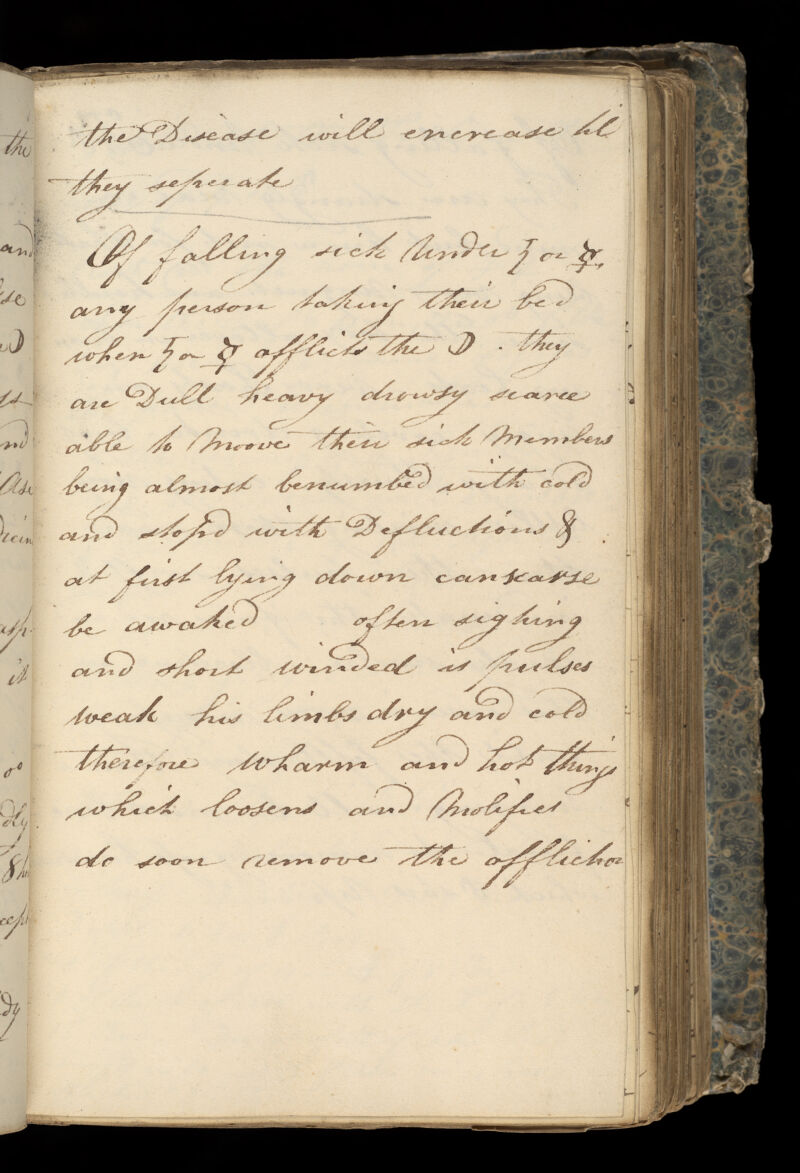 the Disease will encrease til
they seperate
Of falling sick Under ♄ or ☿
any person taking their bed
when ♄ or ☿ afflicts the ☽ . they
are Dull heavy drowsy scarce
able to Moove their sick Members
being almost benumbed with cold
and stop'd with Defluctions &
at first lying down can scarse
be awaked often sighing
and short winded is pulses
weak his limbs dry and cold
therefore wharm and hot things
which loosens and Molifies
do soon remove the affliction
the
and
nd
it